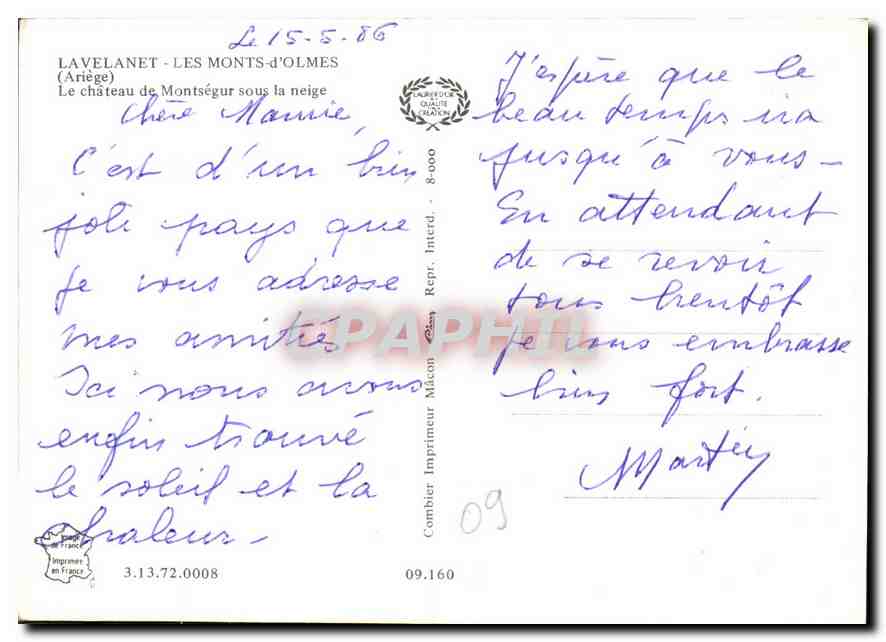 Le 15-5-86
LAVELANET - LES MONTS-d'OLMES
(Ariège)
Le château de Montségur sous la neige
Chère Mamie,
C'est d'un bien
joli pays que
je vous adresse
mes amitiés
Ici nous avons
enfin trouvé
le soleil et la
chaleur -
Image
de France
Imprimée
en France
3.13.72.0008
09.160
LAURIER D'OR
DE LA
QUALITÉ
DE LA
CRÉATION
Combier Imprimeur Mâcon Cim Repr. Interd. - 8-000
CPAPHIL
J'espère que le
beau temps ira
jusqu'à vous -
En attendant
de se revoir
tous bientôt
je vous embrasse
bien fort.
09